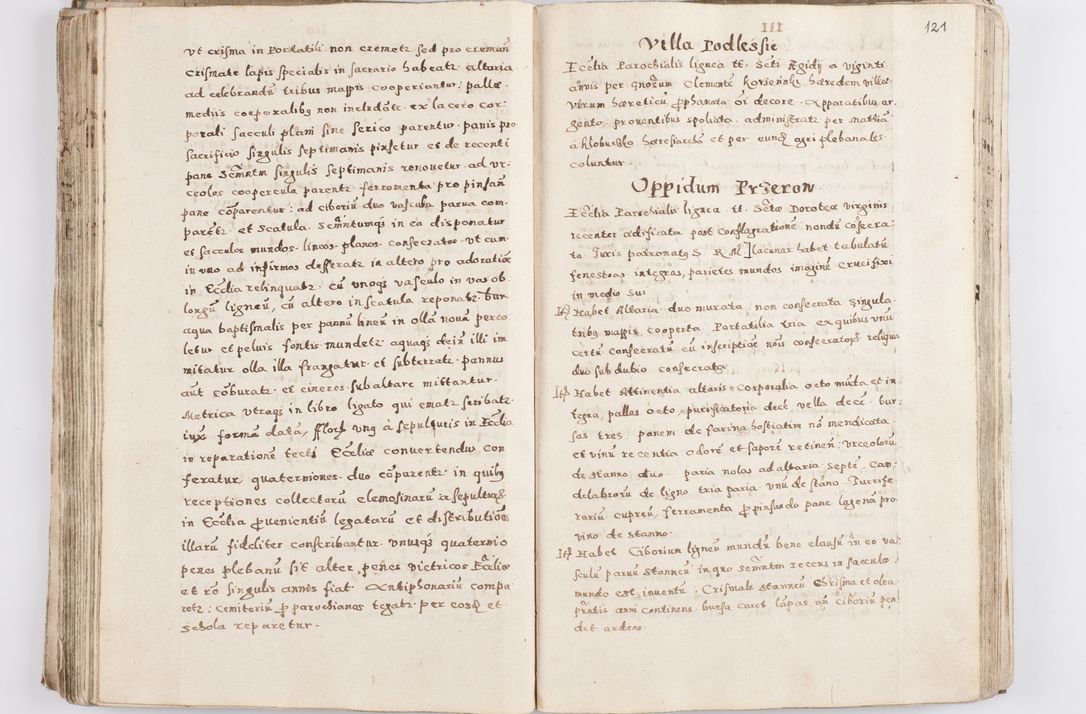 vt crisma in Portatili non cremetz sed pro cremañ
Crismate lapis specialis in sacrario habeatz altaria
ad celebrandũ tribus mappis cooperiantur : pallæ
mediis corporalibq non includãtz ex lacero cor:
porali sacculi plani sine serico parentur panis pro
sacrificio singulis septimanis pinsetur et de recenti
pane Scm̃ntm singulis septimanis renouetur ad vr:
ceolos coopercula parentz ferromenta pro pinsañ
pane cõparentur : ad ciboriũ duo vascula parua com-
parẽtz et Scatula. Scm̃ntumqs in ea disponatur
et sacculos mundos lineos planos consecratos vt cum
in vno ad infirmos defferatz in altero pro adoratiõe
in Ecclia relinquatz cũ vnoqs vasculo in vas ob
longũ ligneũ, cũ altero in scatula reponatz bur
aqua baptismalis per pannũ lineũ in ollã nouã perco
letur et peluis fontis mundetz aquaqs dein illi im
mitatur olla illa frangatur et subterratz pannus
aut cõburatz et cineres sub altare mittantur
Metrica vtraqs in libro ligato qui ematz scribatz
iux formã datã, fflor unq à sepulturis in Ecclia
in reparatione tecti Ecclæ conuertendus con
feratur, quaterniones duo cõparentz in quibq
receptiones collectorũ elemosinarũ a sepulturis
in Ecclia ꝓuenientiũ legatarũ et distributiões
illarũ fideliter conscribantur vnusqs quaternio
penes plebanũ sit alter penes victricos Ecclæ
et rõ singulis annis fiat Antiphonariũ compa
retz : Cemiteriũ ꝑ parochianos tegatz per eosq et
Schola reparetur .
III
121
Villa Podlessie
Ecclia Parochialis lignea tt. Scti Ægidij a viginti
annis per Clementẽ hæredem villæ
virum hæreticũ ꝓphanata õi decore Apparatibus ar
gento prouentibus spoliata administratz per Mathiã
à Kłobucko hæresiarchã et per eundq agri plebanales
coluntur
Oppidum Przeron
Ecclia Parochialis lignea tt. Sctæ Doroteæ virginis
recenter ædificata post conflagrationẽ nondũ cõsecra:
ta Juris patronatq S. R. M. lacunar habet tabulatũ
fenestras integras, parietes mundos imaginẽ crucifixi
in medio sui
Itq Habet Altaria duo murata, non consecrata singula
tribq mappis cooperta Portatilia tria ex quibus vnũ
certũ consecratũ cũ inscriptiõe nõis consecratoris reliqua
duo sub dubio consecrata
Itq Habet Attinentia altaris Corporalia octo mũda et in:
tegra, pallas octo purificatoria decẽ, vella decẽ bur
sas tres, panem de farina hostiatim nõ mendicata
et vinũ recentia odorẽ et saporẽ retineñ vrceolorũ
de stanno duo paria nolas ad altaria septẽ Can
delabrorũ de ligno tria paria vnũ de stãno Turrife
rariũ cupreũ ferramenta ꝓ pinsando pane lagenã pro
vino de stanno
Itq Habet Ciborium ligneũ mundũ bene clausũ in eo va
sculũ paruũ stanneũ in quo Scm̃ntm recens in sacculo
mundo est inuentũ : Crismale stanneũ Chrisma et olea
pr̃ntis anni continens bursa caret lãpas añ ciboriũ pen
det ardens